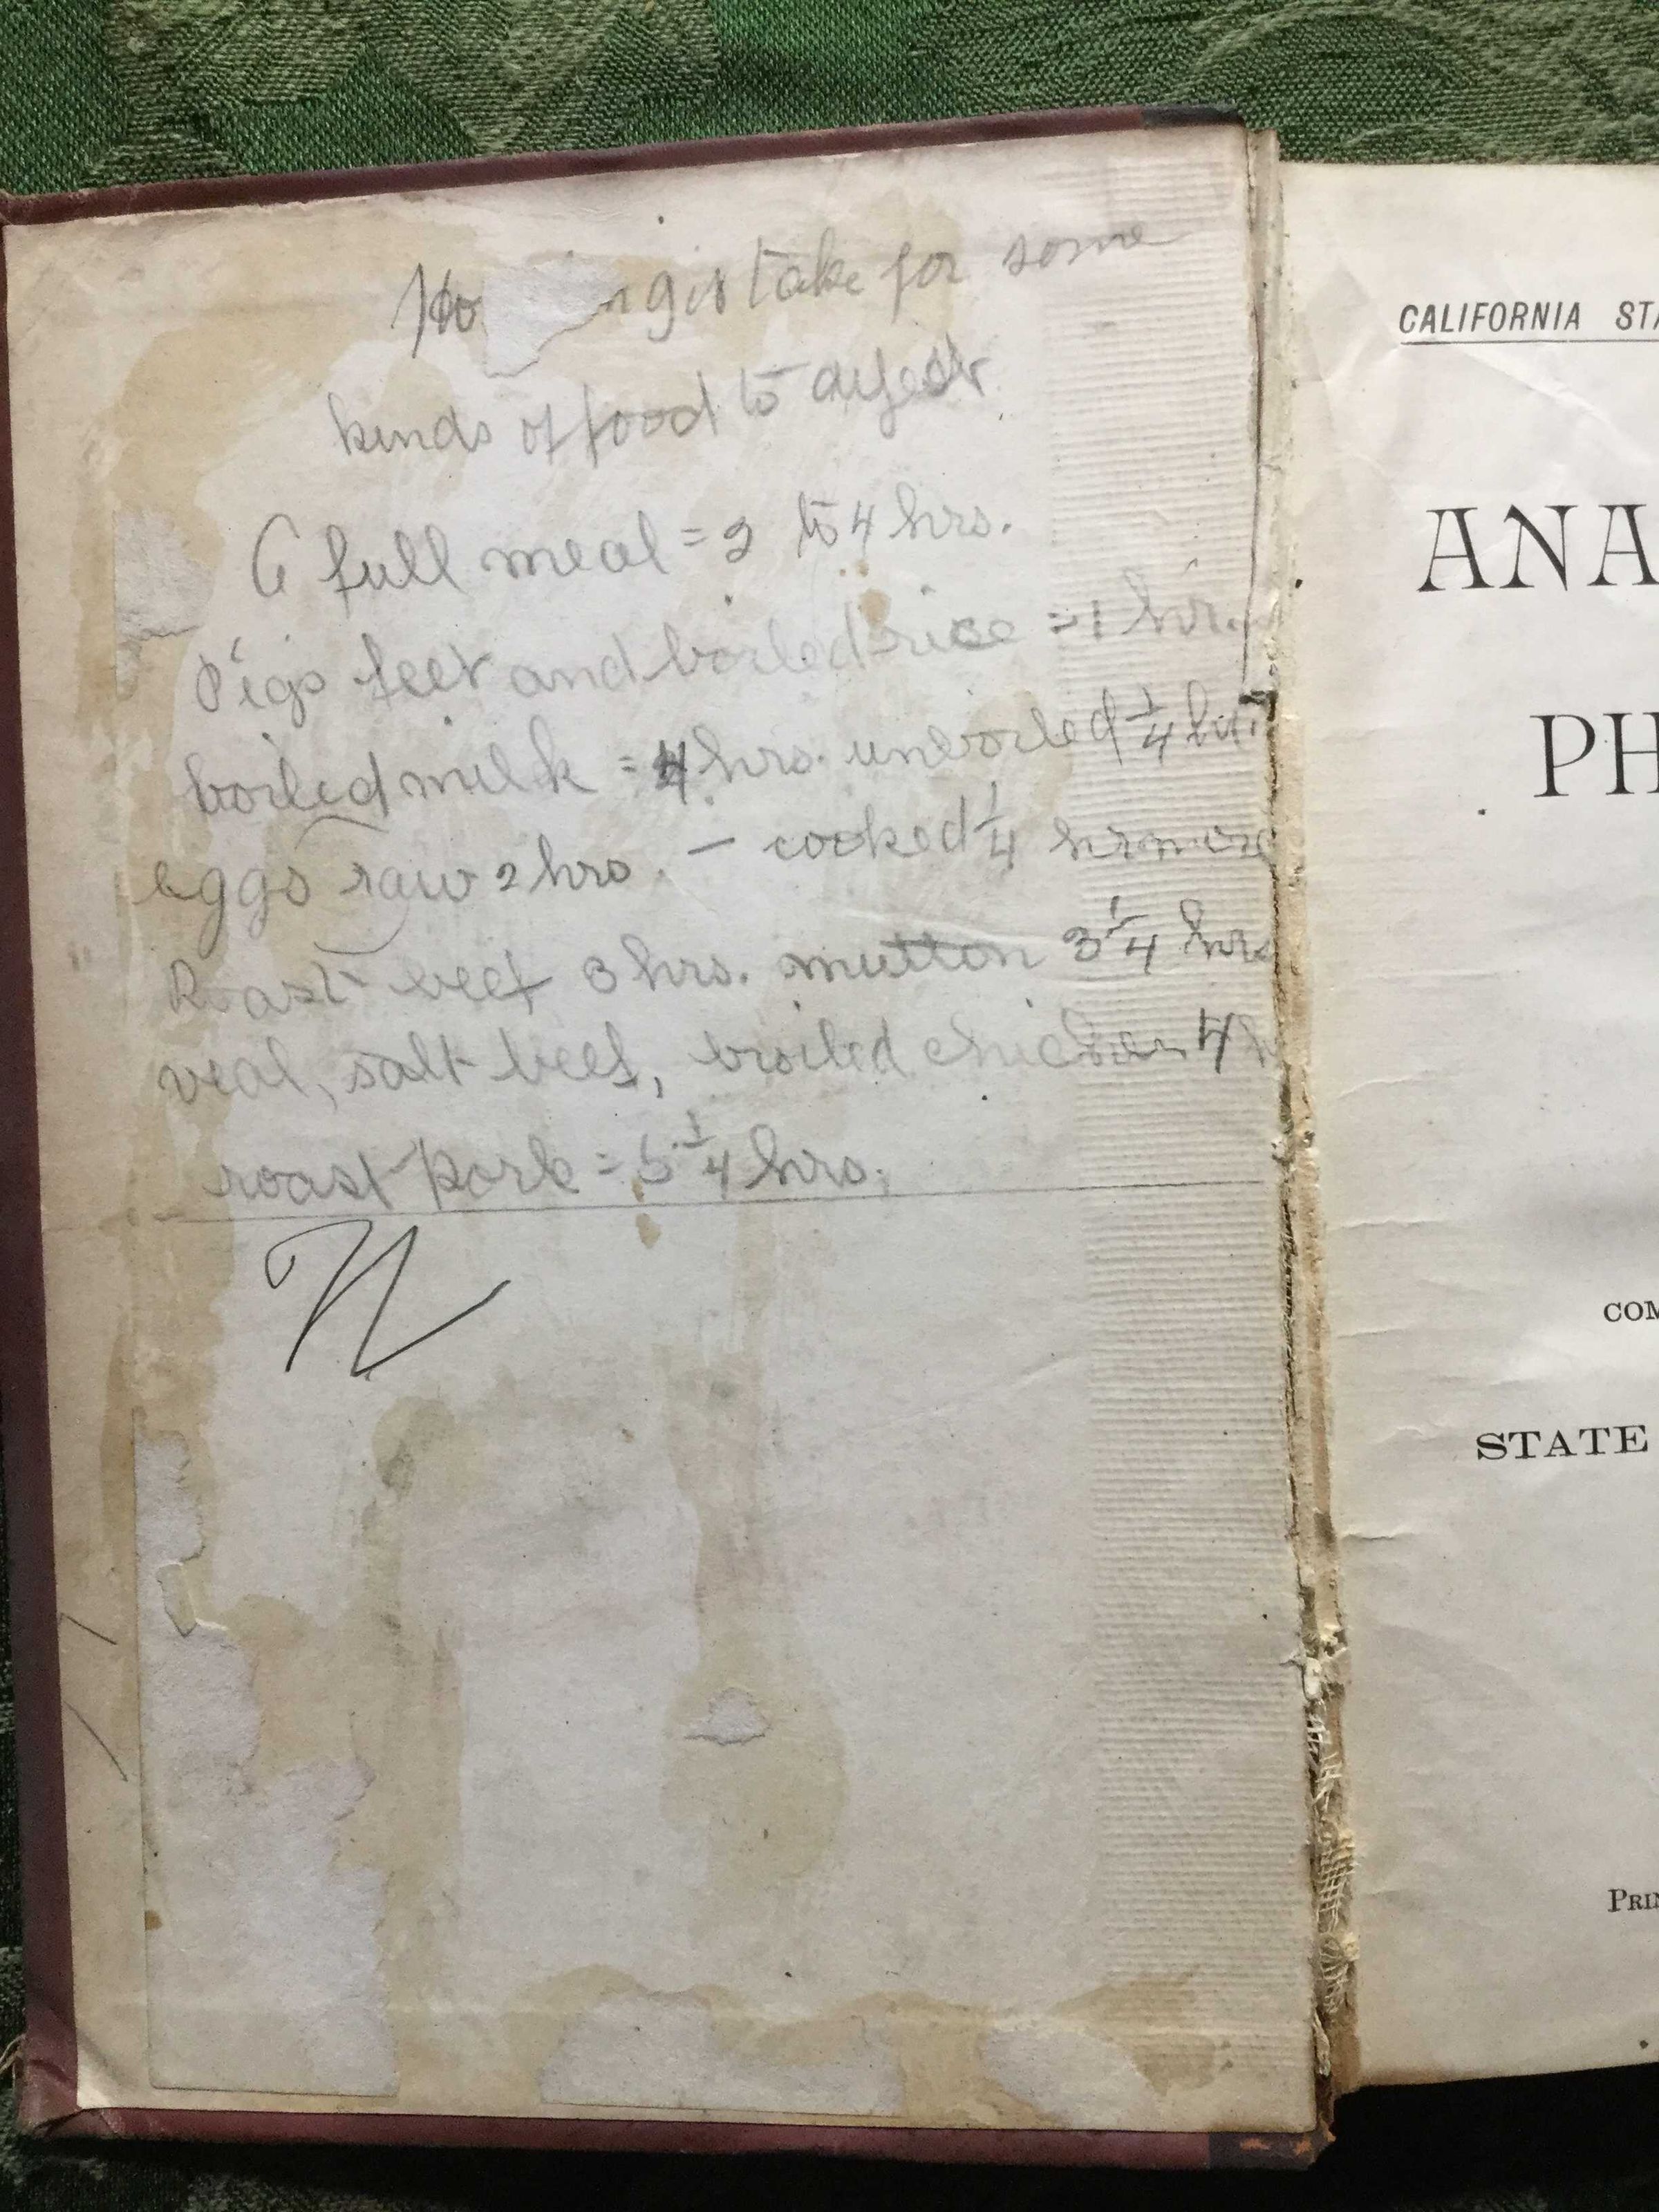 Ho ng it take for some
kinds of food to digest
A full meal = 2 to 4 hrs.
Pigs feet and boiled rice = 1 hr.
boiled milk = 4 hrs. unboiled 1/4
eggs raw 2 hrs. — cooked 1/4 hr more
Roast beef 3 hrs. mutton 3 1/4 hrs
veal, salt beef, broiled chicken 4 h
roast pork = 5 1/4 hrs.
CALIFORNIA STA
ANA
PH
COM
STATE
PRIN